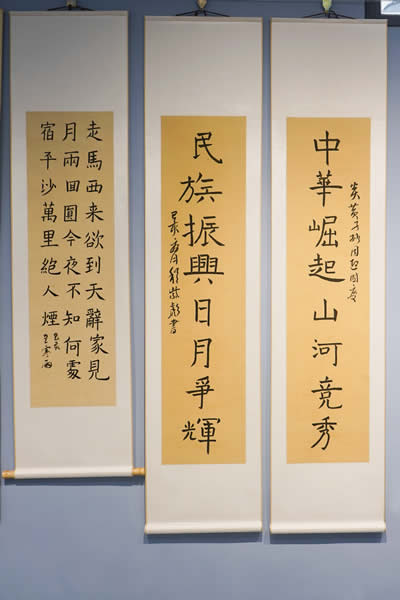 中華崛起山河竞秀
炎黄子孙同
民族振興日月爭輝
走馬西来欲到天辭家見
月兩回圓今夜不知何處
宿平沙萬里絕人煙